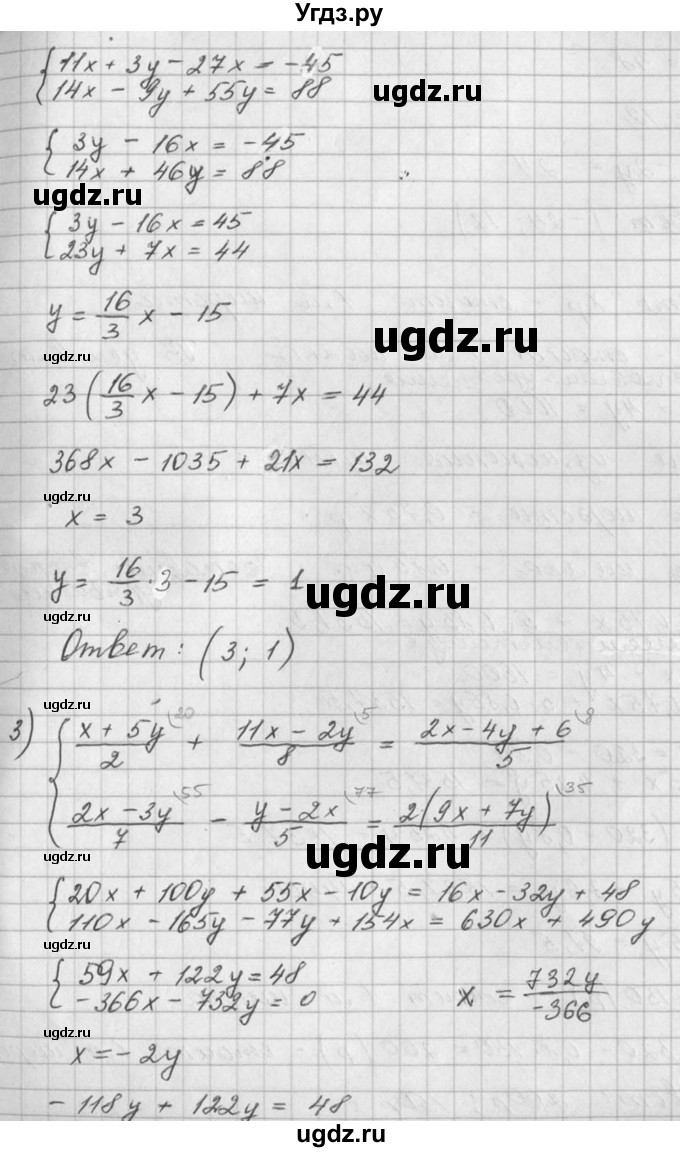 Угдз.ру
{ 11x + 3y - 27x = -45
14x - 9y + 55y = 88
ugdz.ru
{ 3y - 16x = -45
14x + 46y = 88
ugdz.ru
{ 3y - 16x = 45
23y + 7x = 44
y = 16/3 x - 15
ugdz.ru
ugdz.ru
23(16/3 x - 15) + 7x = 44
368x - 1035 + 21x = 132
ugdz.ru
x = 3
y = 16/3 · 3 - 15 = 1
ugdz.ru
ugdz.ru
Ответ: (3; 1)
ugdz.ru
3) { (x + 5y)/2 \20 + (11x - 2y)/8 \5 = (2x - 4y + 6)/5 \8
(2x - 3y)/7 \55 - (y - 2x)/5 \77 = 2(9x + 7y)/11 \35
ugdz.ru
ugdz.ru
{ 20x + 100y + 55x - 10y = 16x - 32y + 48
110x - 165y - 77y + 154x = 630x + 490y
ugdz.ru
{ 59x + 122y = 48
-366x - 732y = 0
x = 732y/-366
x = -2y
ugdz.ru
-118y + 122y = 48
ugdz.ru